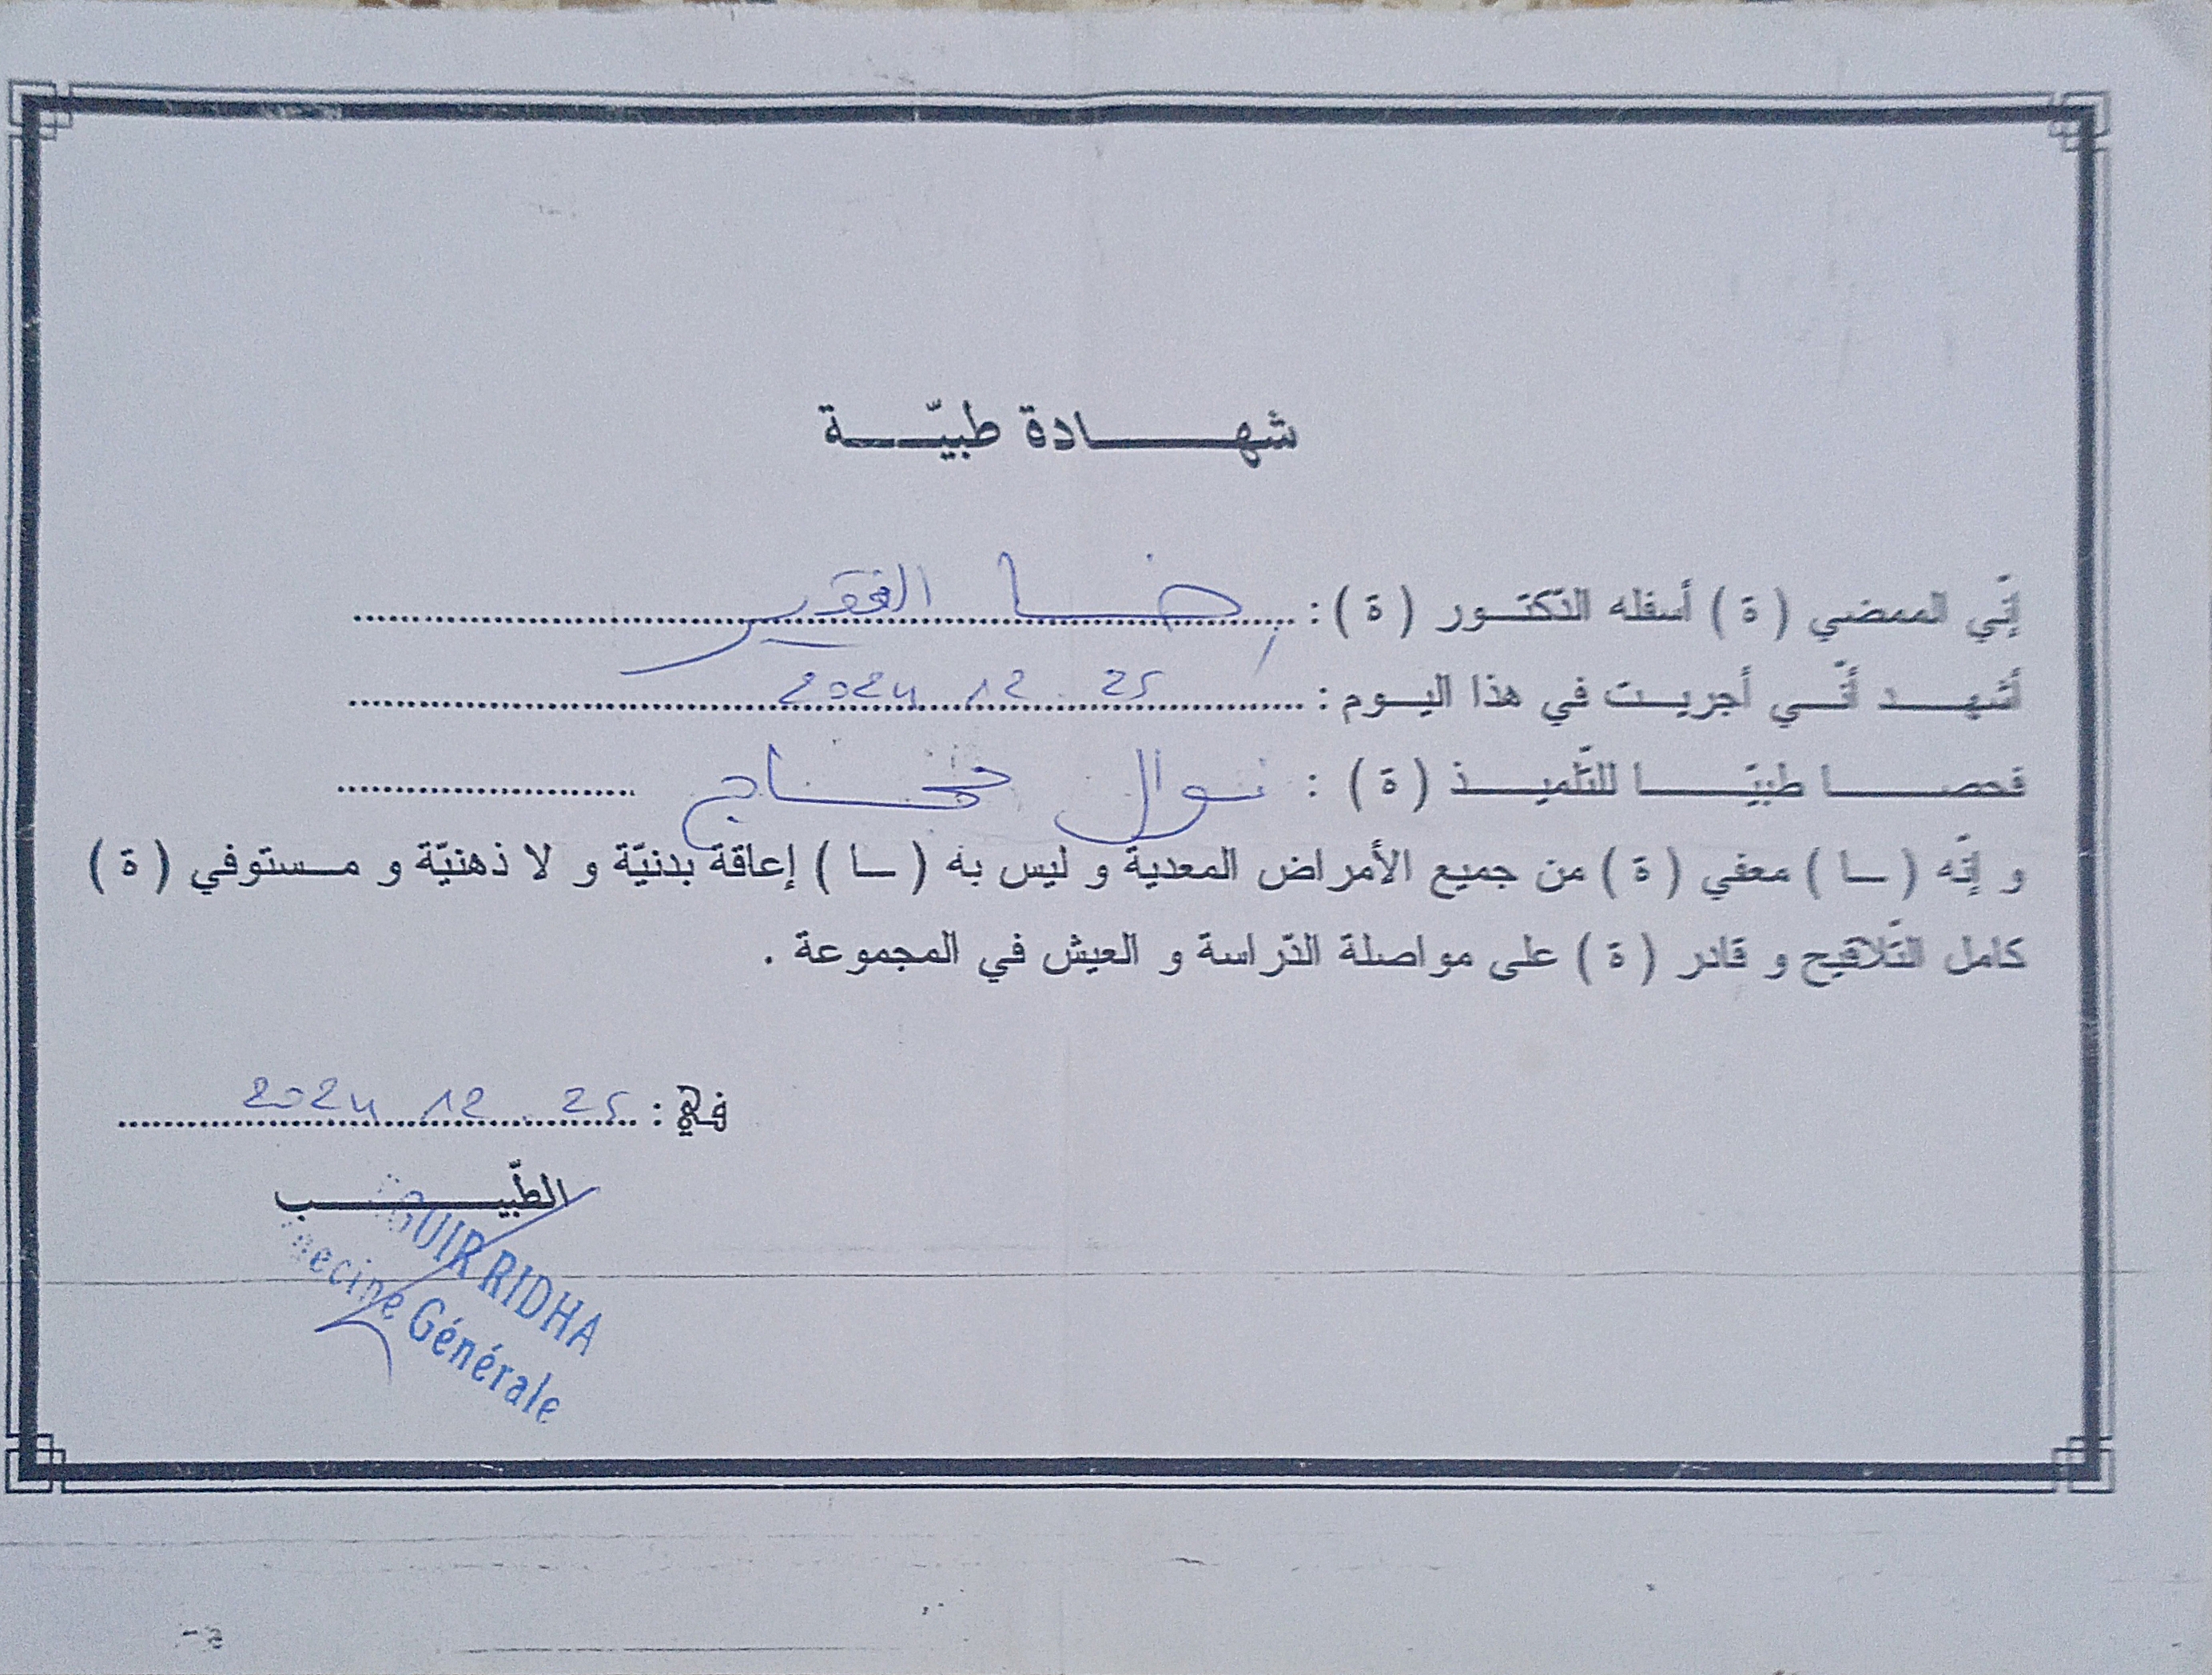 شهادة طبيّة
إنّي الممضي ( ة ) أسفله الدّكتور ( ة ) : رضا الفقير
أشهد أنّي أجريت في هذا اليوم : 25 12 2024
فحصا طبيّا للتّلميذ ( ة ) : نوال حجاج
و إنّه ( ـا ) معفي ( ة ) من جميع الأمراض المعدية و ليس به ( ـا ) إعاقة بدنيّة و لا ذهنيّة و مستوفي ( ة )
كامل التّلاقيح و قادر ( ة ) على مواصلة الدّراسة و العيش في المجموعة .
في : 25 . 12 2024
الطّبيب
RIDHA
Générale